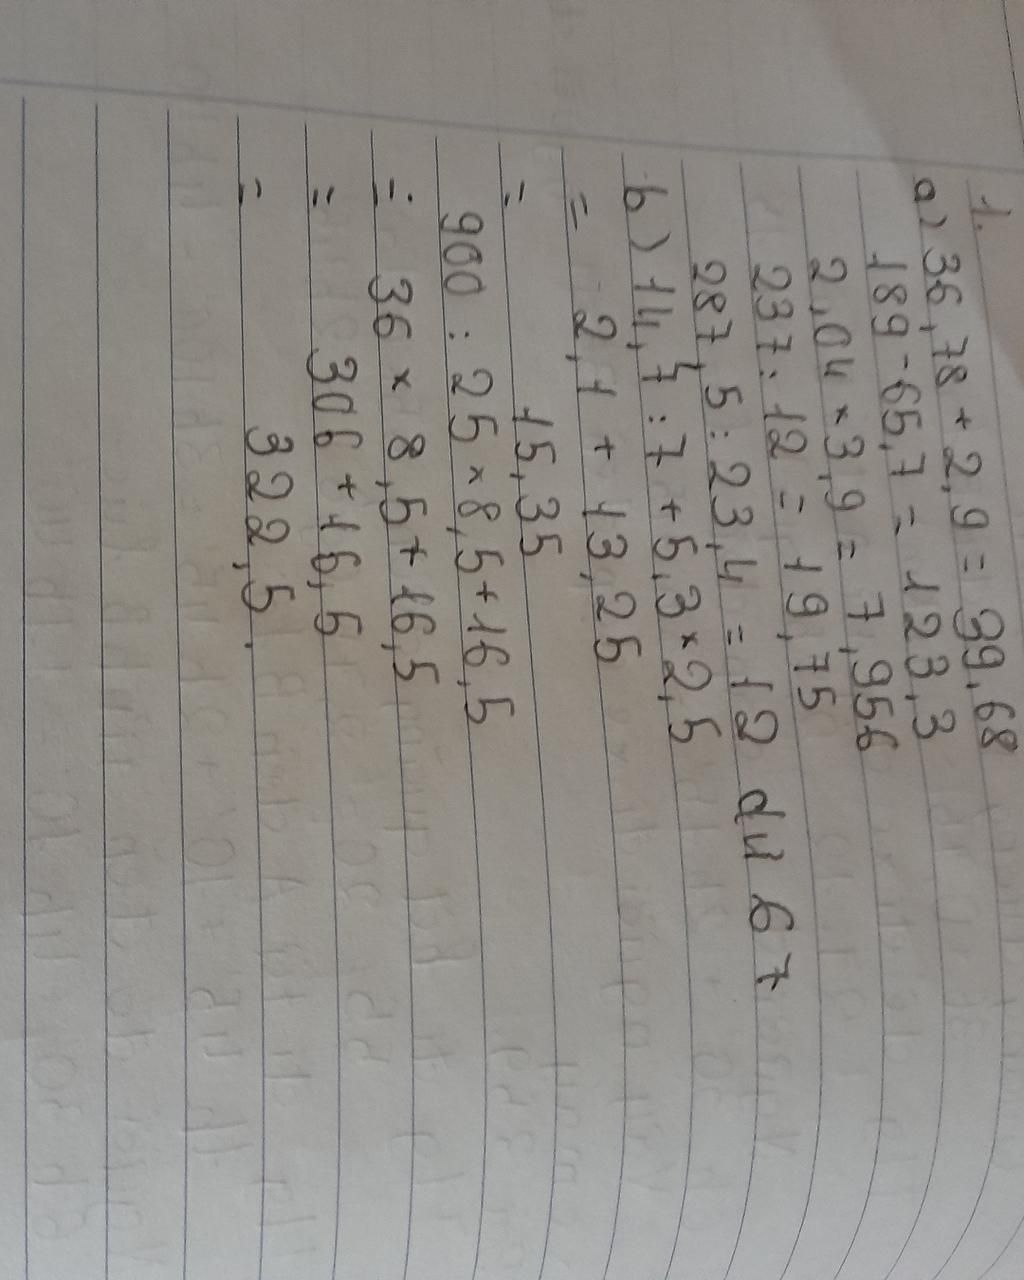 1.
a) 36,78 + 2,9 = 39,68
189 - 65,7 = 123,3
2,04 × 3,9 = 7,956
237 : 12 = 19,75
287,5 : 23,4 = 12 dư 67
b) 14,7 : 7 + 5,3 × 2,5
= 2,1 + 13,25
= 15,35
900 : 25 × 8,5 + 16,5
= 36 × 8,5 + 16,5
= 306 + 16,5
= 322,5.